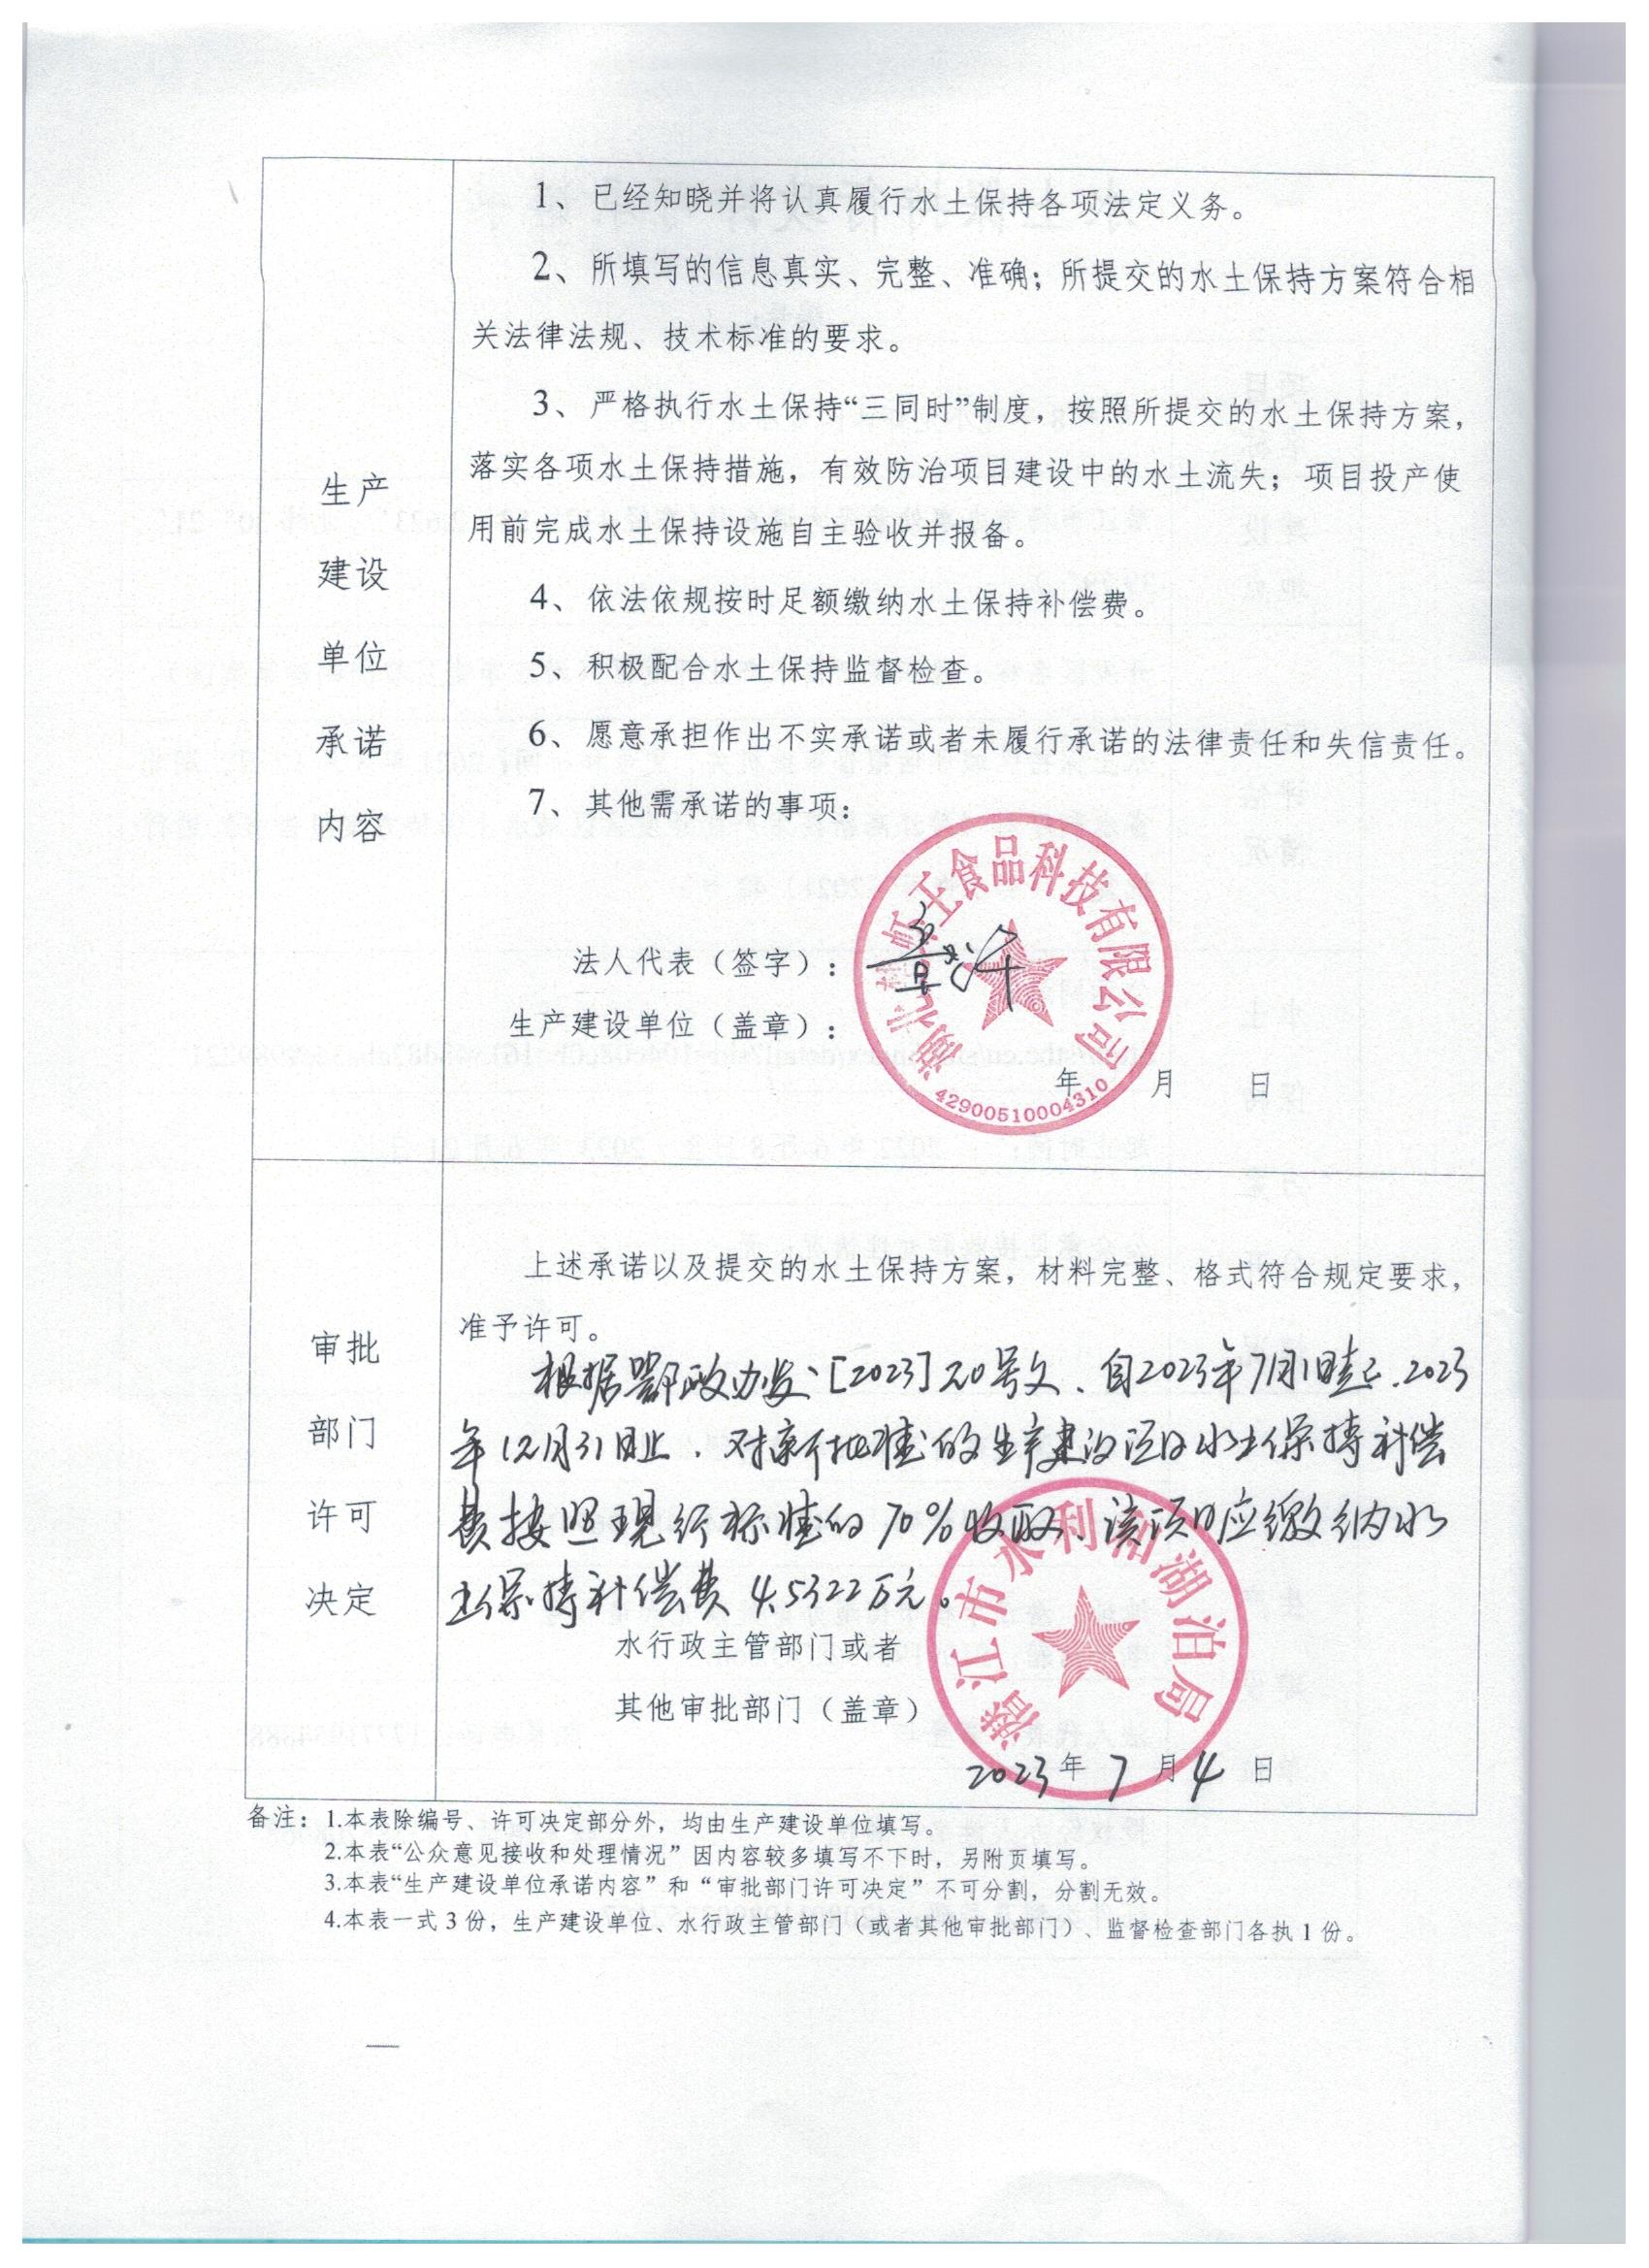 生产
建设
单位
承诺
内容
1、已经知晓并将认真履行水土保持各项法定义务。
2、所填写的信息真实、完整、准确；所提交的水土保持方案符合相
关法律法规、技术标准的要求。
3、严格执行水土保持“三同时”制度，按照所提交的水土保持方案，
落实各项水土保持措施，有效防治项目建设中的水土流失；项目投产使
用前完成水土保持设施自主验收并报备。
4、依法依规按时足额缴纳水土保持补偿费。
5、积极配合水土保持监督检查。
6、愿意承担作出不实承诺或者未履行承诺的法律责任和失信责任。
7、其他需承诺的事项：
法人代表（签字）：
生产建设单位（盖章）：
湖北虾王食品科技有限公司
42900510004310
年 月 日
审批
部门
许可
决定
上述承诺以及提交的水土保持方案，材料完整、格式符合规定要求，
准予许可。
根据鄂政办发[2023]20号文、自2023年7月1日起.2023
年12月31日止.对新批准的生产建设项目水土保持补偿
费按照现行标准的70%收取、该项目应缴纳水
土保持补偿费4.5322万元。
水行政主管部门或者
其他审批部门（盖章）
潜江市水利和湖泊局
2023年7月4日
备注：1.本表除编号、许可决定部分外，均由生产建设单位填写。
2.本表“公众意见接收和处理情况”因内容较多填写不下时，另附页填写。
3.本表“生产建设单位承诺内容”和“审批部门许可决定”不可分割，分割无效。
4.本表一式3份，生产建设单位、水行政主管部门（或者其他审批部门）、监督检查部门各执1份。